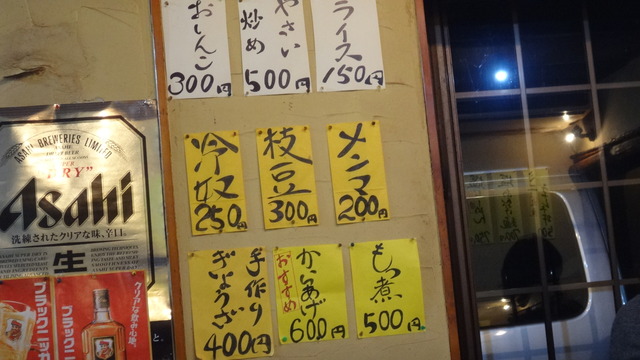 おしんこ
300円
やさい
炒め
500円
ライス
150円
冷奴
250円
枝豆
300円
メンマ
200円
手作り
ぎょうざ
400円
からあげ
おすすめ
600円
もつ煮
500円
ASAHI BREWERIES LIMITED
"DRY"
Asahi
洗練されたクリアな味、辛口。
生
ブラックニッカ
ブラックニッ
クリアな飲み心地、